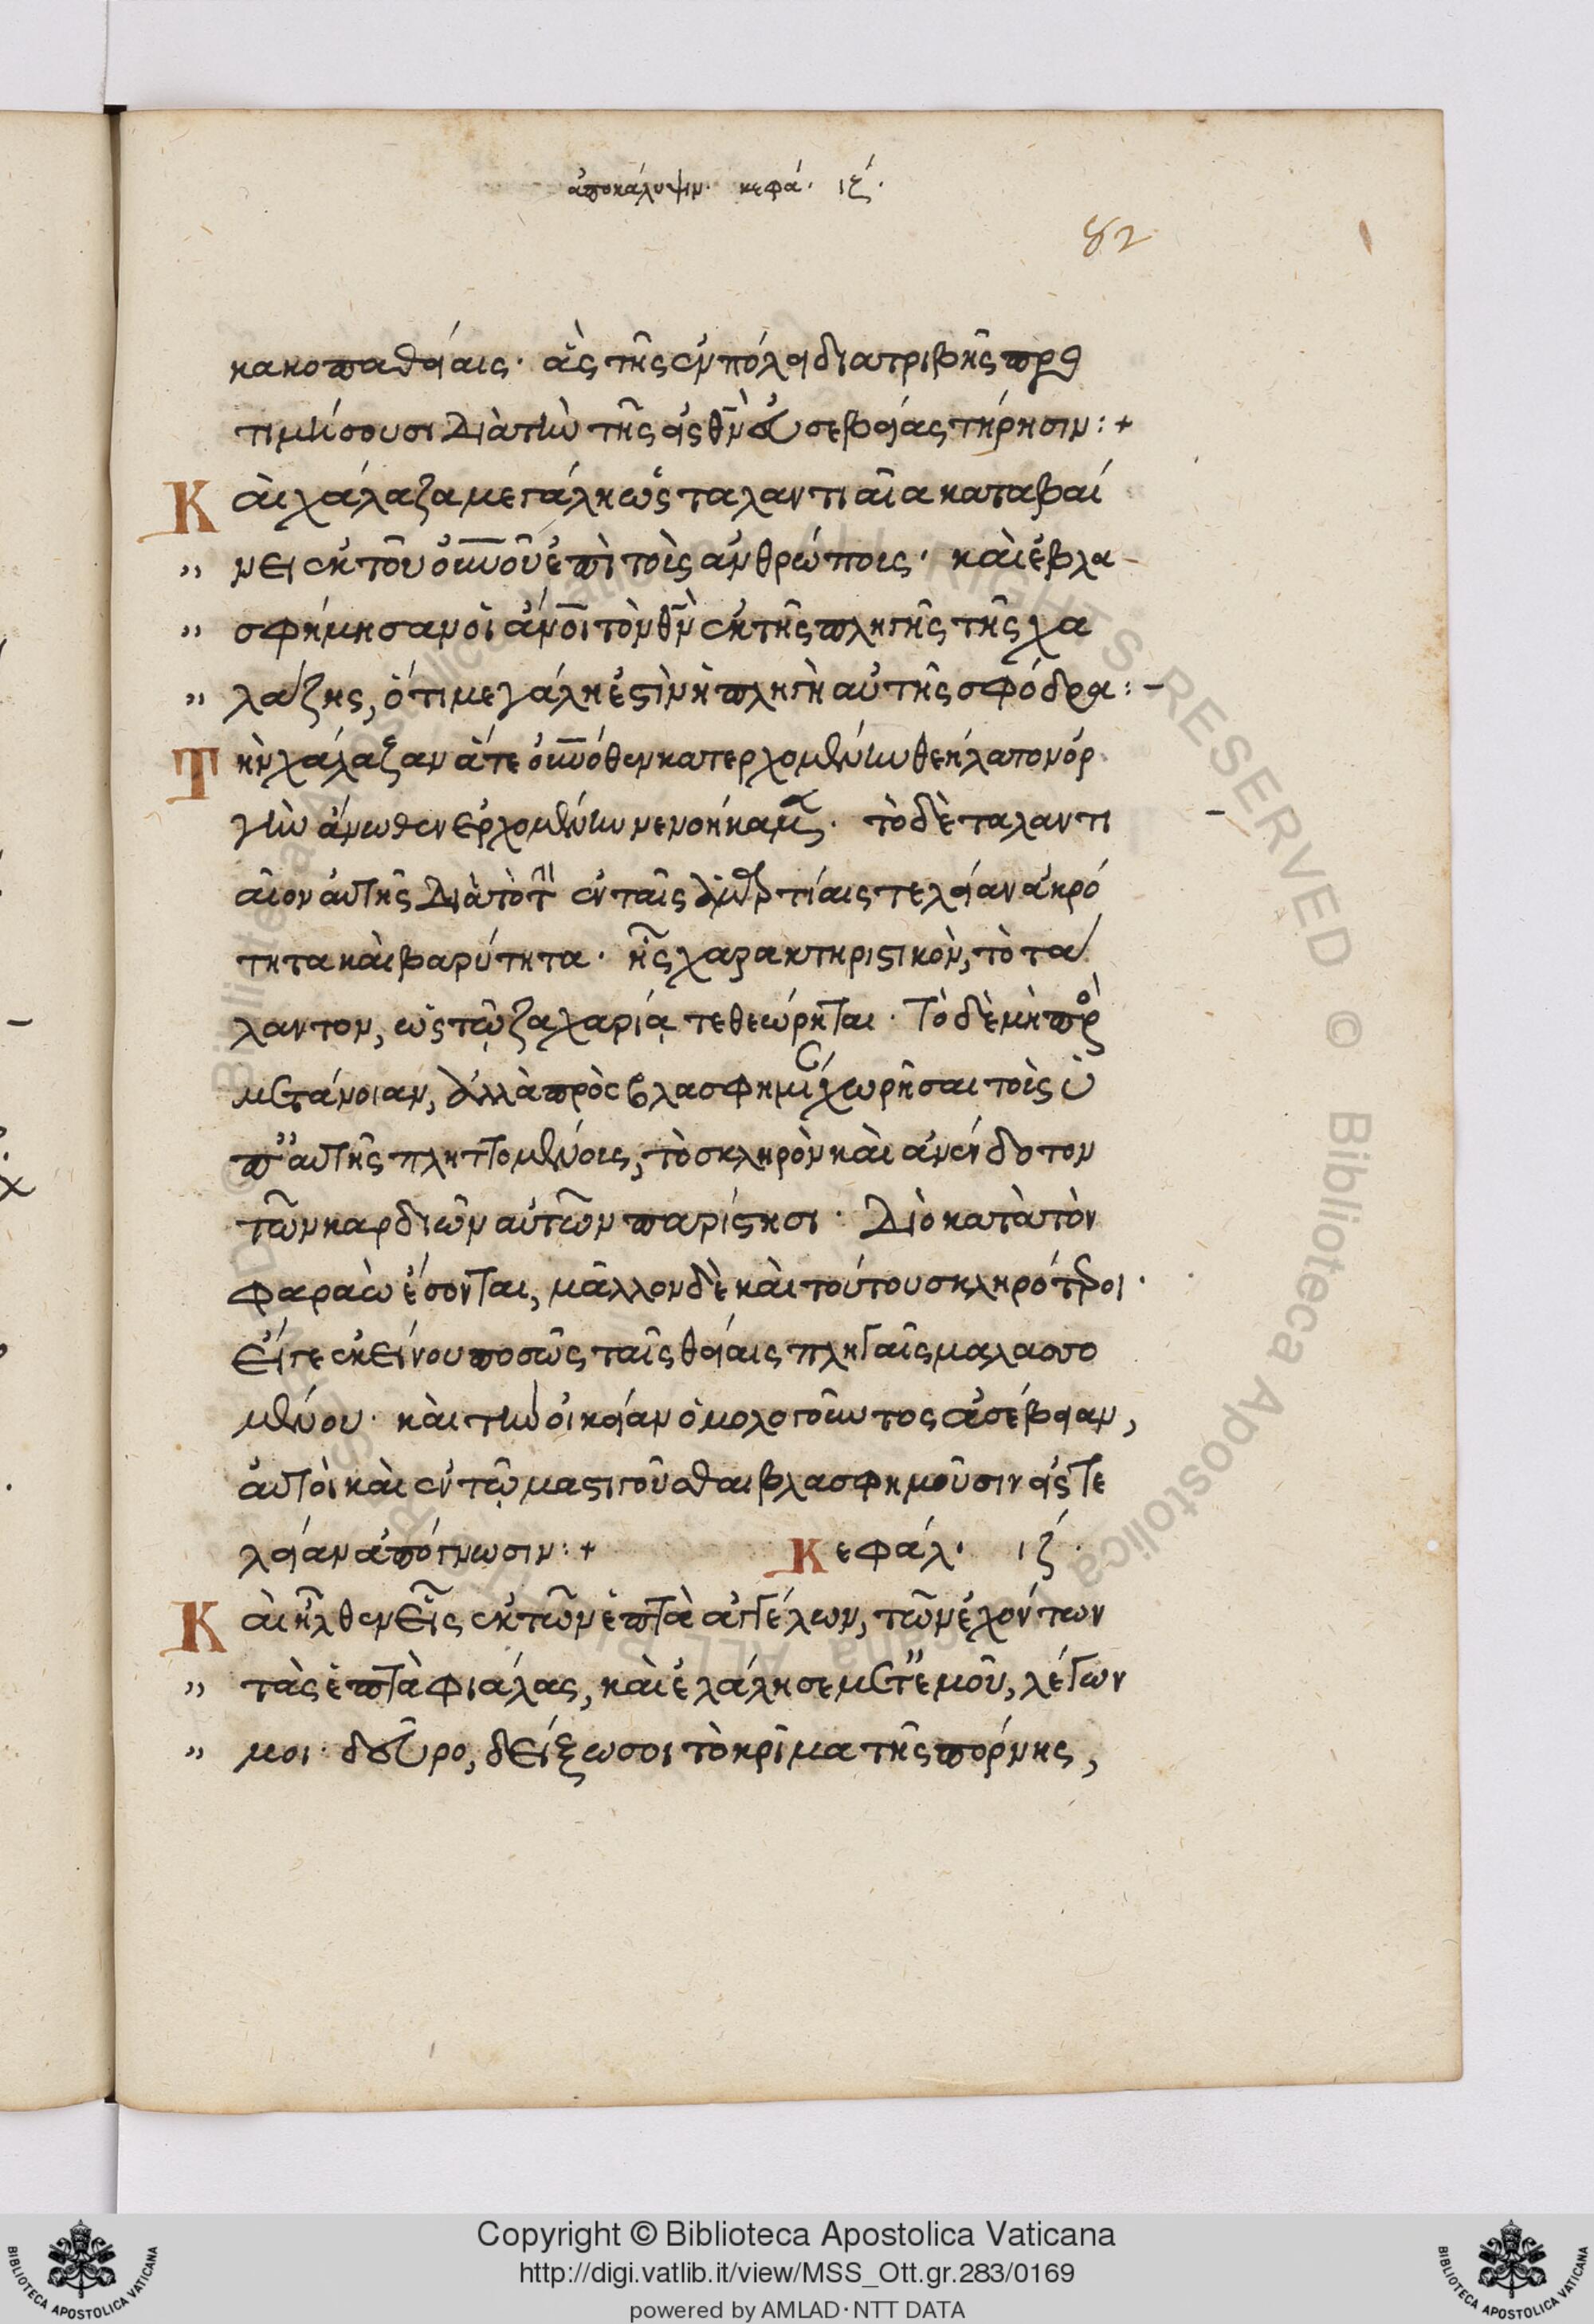 ἀποκάλυψιν. κεφά. ιϛ´.
82
κακοπαθείαις· ἃς τῆς ἐν πόλει διατριβῆς προ
τιμήσουσι διὰ τὴν τῆς εἰς θν̅ εὐσεβείας τήρησιν:+
Καὶ χάλαζα μεγάλη ὡς ταλαντιαῖα καταβαί
„ νει ἐκ τοῦ οὐνοῦ ἐπὶ τοὺς ἀνθρώπους· καὶ ἐβλα-
„ σφήμησαν οἱ ἄνοι τὸν θν̅ ἐκ τῆς πληγῆς τῆς χα
„ λάζης, ὅτι μεγάλη ἐστὶν ἡ πληγὴ αὐτῆς σφόδρα:-
Τὴν χάλαζαν ἅτε οὐνόθεν κατερχομένην θεήλατον ὀρ
γὴν ἄνωθεν ἐρχομένην νενοήκαμεν. τὸ δὲ ταλαντι
αῖον αὐτῆς διὰ τὸ τὴν ἐν ταῖς ἁμαρτίαις τελείαν ἀκρό
τητα καὶ βαρύτητα· ἧς χαρακτηριστικὸν, τὸ τά
λαντον, ὡς τῷ ζαχαρίᾳ τεθεώρηται. Τὸ δὲ μὴ πρὸς
μετάνοιαν, ἀλλὰ πρὸς βλασφημίαν χωρῆσαι τοὺς ὑ
π᾽ αὐτῆς πληττομένους, τὸ σκληρὸν καὶ ἀνένδοτον
τῶν καρδιῶν αὐτῶν παρίστησι. Διὸ κατὰ τὸν
φαραὼ ἔσονται, μᾶλλον δὲ καὶ τούτου σκληρότεροι.
εἴγε ἐκείνου ποσῶς ταῖς θείαις πληγαῖς μαλασσο
μένου· καὶ τὴν οἰκείαν ὁμολογοῦντος ἀσέβειαν,
αὐτοὶ καὶ ἐν τῷ μαστιγοῦσθαι βλασφημοῦσιν εἰς τε
λείαν ἀπόγνωσιν:+ Κεφάλ. ιζ´.
Καὶ ἦλθεν εἷς ἐκ τῶν ἑπτὰ ἀγγέλων, τῶν ἐχόντων
„ τὰς ἑπτὰ φιάλας, καὶ ἐλάλησε μετ᾽ ἐμοῦ, λέγων
„ μοι· δεῦρο, δείξω σοι τὸ κρῖμα τῆς πόρνης,
© Biblioteca Apostolica Vaticana ALL RIGHTS RESERVED
Copyright © Biblioteca Apostolica Vaticana
http://digi.vatlib.it/view/MSS_Ott.gr.283/0169
powered by AMLAD · NTT DATA
BIBLIOTECA APOSTOLICA VATICANA
BIBLIOTECA APOSTOLICA VATICANA